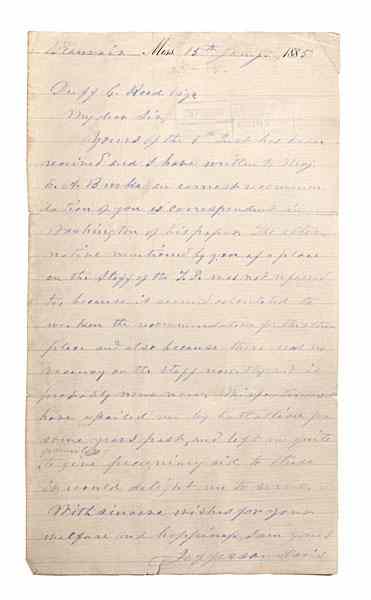 Beauvoir Miss 15th Jany 1885
Duff C. Reed Esqr
My dear Sir,
Yours of the 6th Inst has been
received and I have written to Maj.
E. A. Burke, an earnest recommen
dation of you as correspondent in
Washington of his paper. The alter
native mentioned by you of a place
on the Staff of the T.D. was not referred
to, because it seemed calculated to
weaken the recommendation for the other
place and also because there was no
vacancy on the staff recently and is
probably none now.
have assailed me by battalions for
some years past, and left me quite
powerless
to give pecuniary aid to those
it would delight me to serve.
With sincere wishes for your
welfare and happiness, I am yours
Jefferson Davis